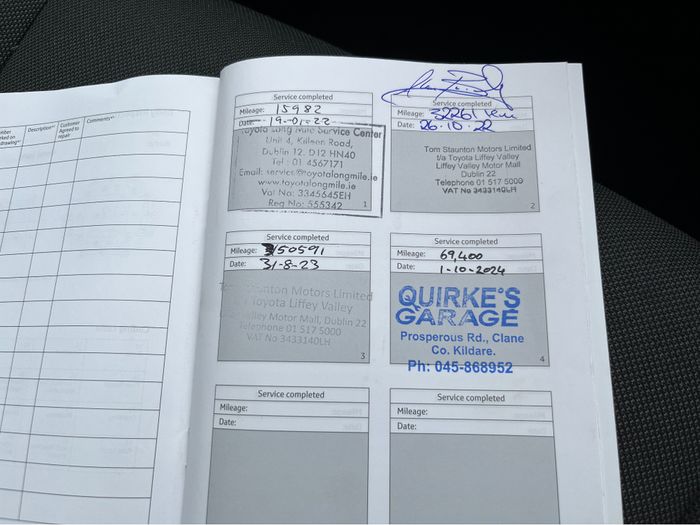 Description
Customer
Agreed to
repair
Comments
Service completed
Mileage: 15982
Date: 19-01-22
Toyota Long Mile Service Center
Unit 4, Kilnan Road,
Dublin 12. D12 HN40
Tel : 01 4567171
Email: service@toyotalongmile.ie
www.toyotalongmile.ie
Vat No: 3345645EH
Reg No: 555342
1
Service completed
Mileage: 32261 km
Date: 26.10.22
Tom Staunton Motors Limited
t/a Toyota Liffey Valley
Liffey Valley Motor Mall
Dublin 22
Telephone 01 517 5000
VAT No 3433140LH
2
Service completed
Mileage: 50591
Date: 31-8-23
Staunton Motors Limited
Toyota Liffey Valley
Valley Motor Mall, Dublin 22
Telephone 01 517 5000
VAT No 3433140LH
3
Service completed
Mileage: 69,400
Date: 1-10-2024
QUIRKE'S
GARAGE
Prosperous Rd., Clane
Co. Kildare.
Ph: 045-868952
4
Service completed
Mileage:
Date:
Service completed
Mileage:
Date: